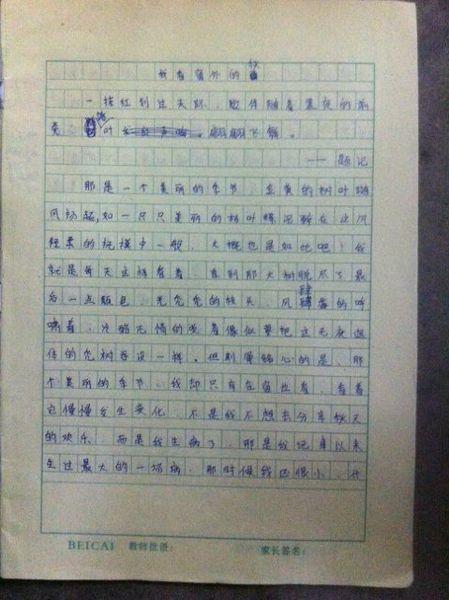 我看窗外的秋
一抹红划过天际，陪伴随着黑夜的雨
叶 翩翩飞舞。
——题记
那是一个美丽的季节，金黄的树叶随
风扬起，如一只只美丽的枯叶蝶沉醉在这风
轻柔的抚摸中一般，大概也是如此吧！我
就是每天这样看着，直到那大树脱尽了最
后一点颜色，光秃秃的枝头，风肆的呼
啸着，冷酷无情的 着像似要把这无
的老树吞没一样。但 的是，那
个美丽的季节，我却只有在窗边看，看着
它慢慢发生变化，不是我不想去分享秋天
的欢乐，而是我生病了，那是我记事以来
生过最大的一场病，那时候我也很小，什
BEICAI 教师批语： 家长签名：